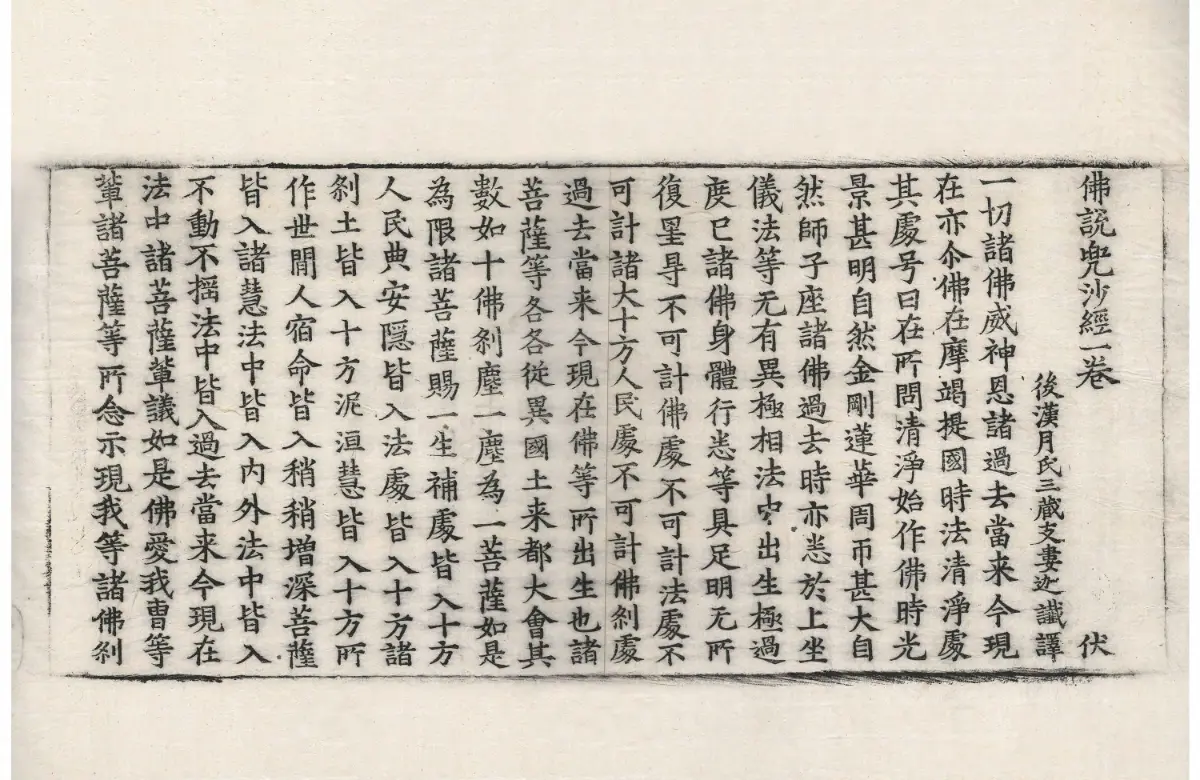 佛說兜沙經一卷 伏
後漢月氏三藏支婁迦讖譯
一切諸佛威神恩諸過去當来今現
在亦尒佛在摩竭提國時法清淨處
其處号曰在所問清淨始作佛時光
景甚明自然金剛蓮華周帀甚大自
然師子座諸佛過去時亦悉於上坐
儀法等无有異極相法中出生極過
度已諸佛身體行悉等具足明无所
復罣㝵不可計佛處不可計法處不
可計諸大十方人民處不可計佛剎處
過去當来今現在佛等所出生也諸
菩薩等各各從異國土来都大會其
數如十佛剎塵一塵為一菩薩如是
為限諸菩薩賜一生補處皆入十方
人民典安隱皆入法處皆入十方諸
剎土皆入十方泥洹慧皆入十方所
作世間人宿命皆入稍稍增深菩薩
皆入諸慧法中皆入内外法中皆入
不動不摇法中皆入過去當来今現在
法中諸菩薩軰議如是佛愛我曹等
軰諸菩薩等所念示現我等諸佛剎